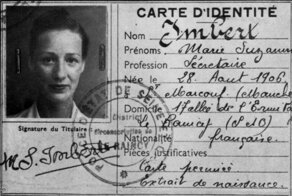 CARTE D'IDENTITÉ
Nom Imbert
Prénoms, Marie Suzanne
Profession Secrétaire
Née le 28 Aout 1906,
Marcouf (Manche
Domicile 17 Allée de l'Ermita
Le Raincy (S et O)
Nationalité française.
Pièces justificatives
Carte périmée
Extrait de naissance.
Signature du Titulaire:
M. S. Imbert
RAINCY